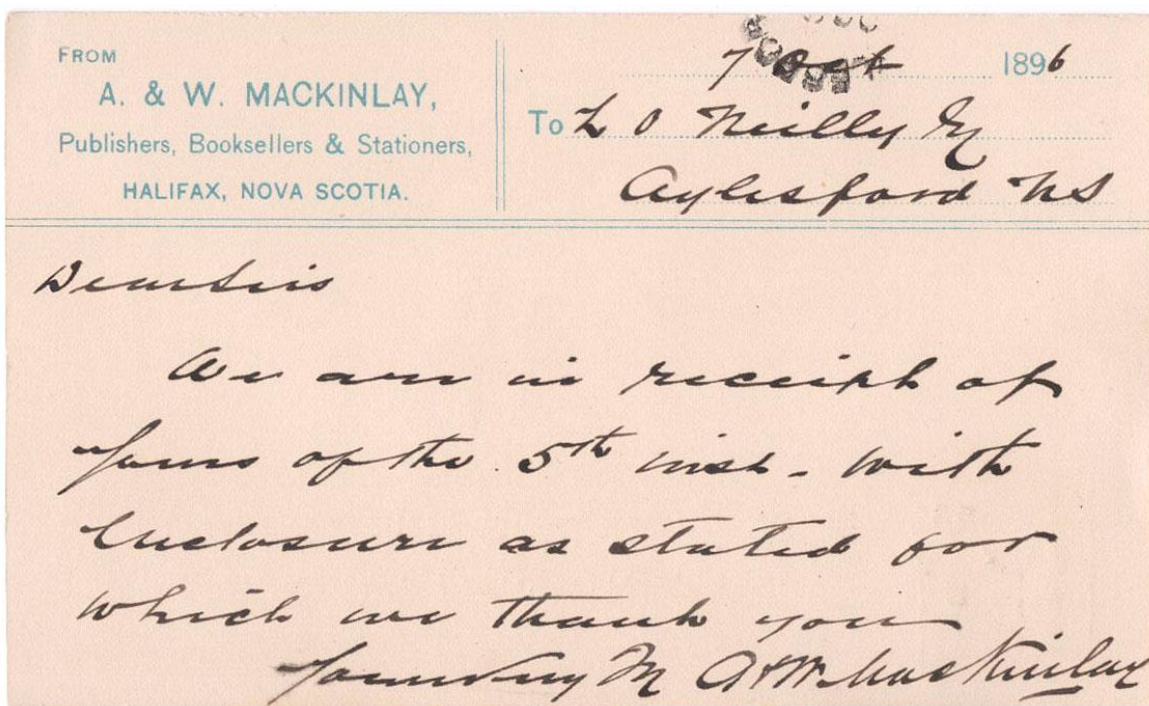 FROM
A. & W. MACKINLAY,
Publishers, Booksellers & Stationers,
HALIFAX, NOVA SCOTIA.
7 Oct 1896
To L O Neilly Esq
Aylesford NS
Dear Sir
We are in receipt of
yours of the 5th inst. with
enclosure as stated for
which we thank you
Yours A & W. MacKinlay